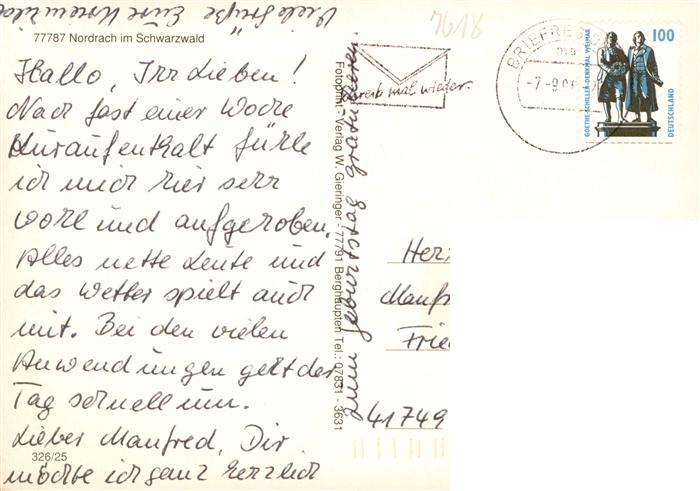 77787 Nordrach im Schwarzwald
Hallo, Ihr Lieben!
Nach fast einer Woche
Kuraufenthalt fühle
ich mich hier sehr
wohl und aufgehoben.
Alles nette Leute und
das Wetter spielt auch
mit. Bei den vielen
Anwendungen geht der
Tag schnell um.
Lieber Manfred, Dir
möchte ich ganz herzlich
zum Geburtstag gratulieren.
Viele Grüße Eure
326/25
Fotoprint - Verlag W. Gieringer · 77791 Berghaupten Tel.: 07831 - 3631
7618
schreib mal wieder.
BRIEFRE
-7.-9.9
GOETHE-SCHILLER-DENKMAL WEIMAR
100
DEUTSCHLAND
Her
Manf
Frie
41749